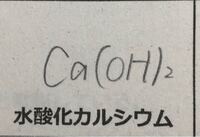 Ca(OH)₂
水酸化カルシウム